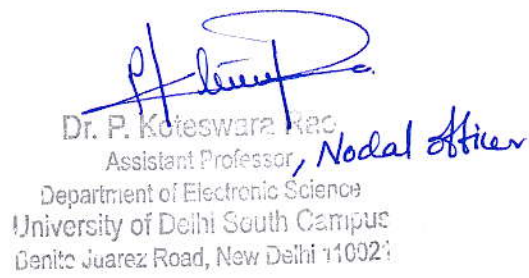 Dr. P. Koteswara Rao
Assistant Professor, Nodal Officer
Department of Electronic Science
University of Delhi South Campus
Benito Juarez Road, New Delhi 110021